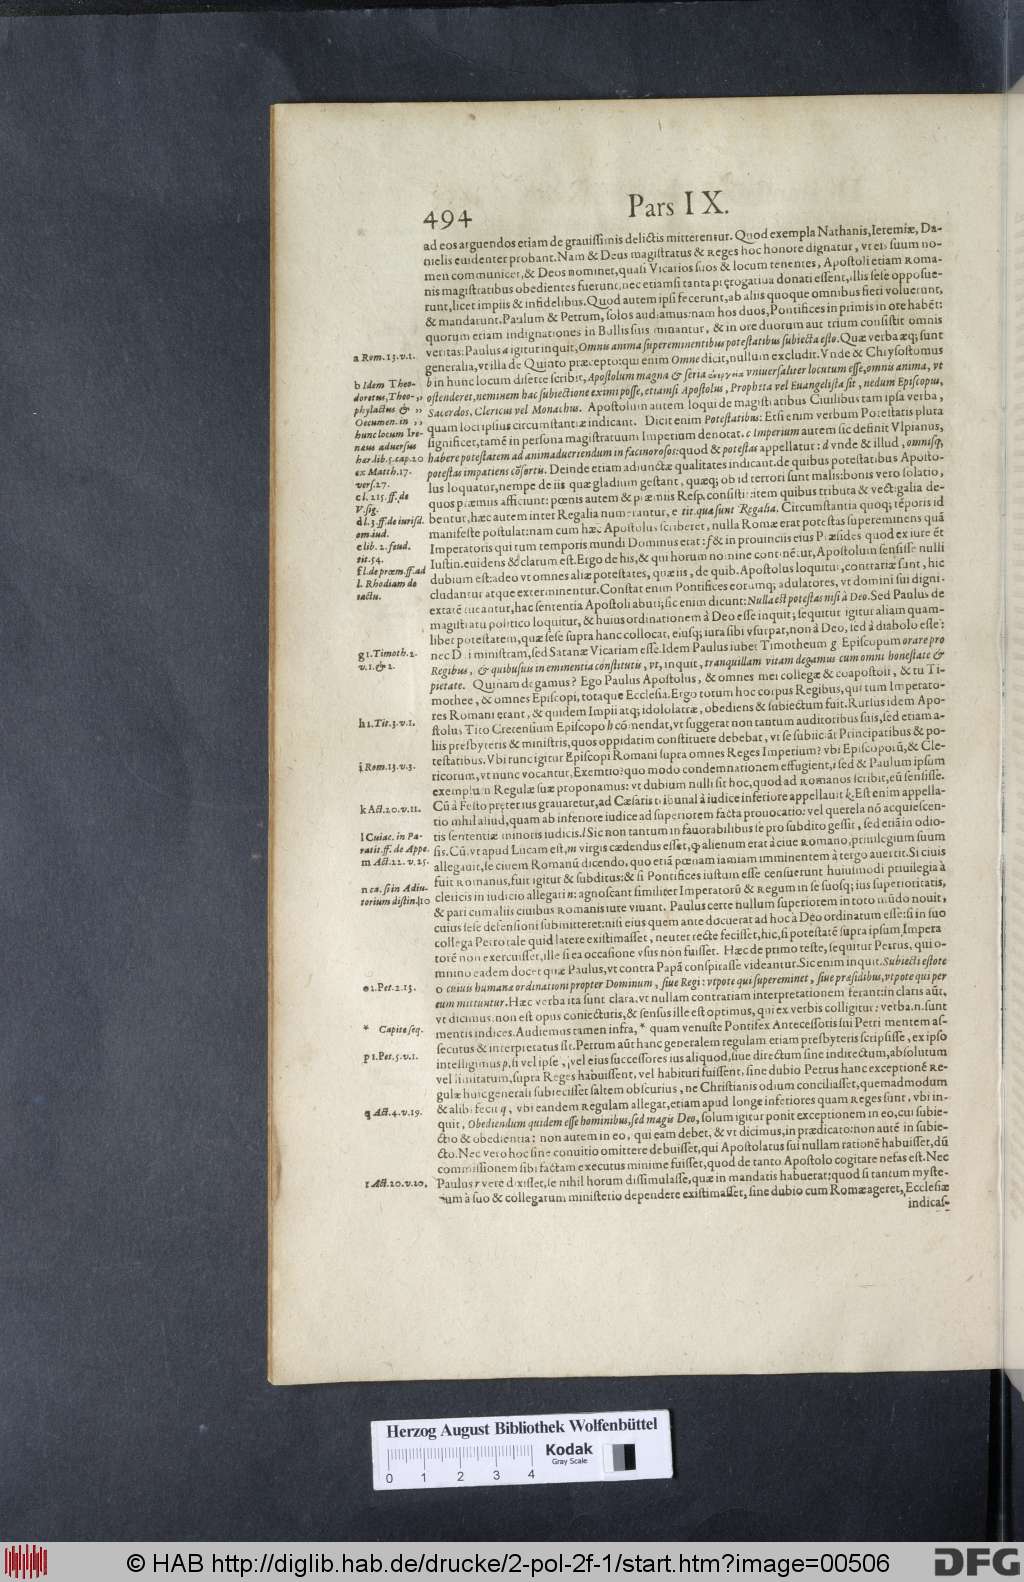 494
Pars IX.
ad eos arguendos etiam de grauissimis delictis mitterentur. Quod exempla Nathanis, Ieremiæ, Da-
nielis euidenter probant. Nam & Deus magistratus & Reges hoc honore dignatur, vt eis suum no-
men communicet, & Deos nominet, quasi Vicarios suos & locum tenentes, Apostoli etiam Roma-
nis magistratibus obedientes fuerunt, nec etiamsi tanta prærogatiua donati essent, illis sese opposue-
runt, licet impiis & infidelibus. Quod autem ipsi fecerunt, ab aliis quoque omnibus fieri voluerunt,
& mandarunt. Paulum & Petrum, solos audiamus: nam hos duos, Pontifices in primis in ore habēt:
quorum etiam indignationes in Bullis suis minantur, & in ore duorum aut trium consistit omnis
veritas: Paulus a igitur inquit, Omnis anima supereminentibus potestatibus subiecta esto. Quæ verba æq; sunt
generalia, vt illa de Quinto præcepto: qui enim Omne dicit, nullum excludit. Vnde & Chrysostomus
b in hunc locum diserte scribit, Apostolum magna & seria vniuersaliter locutum esse, omnis anima, vt
ostenderet, neminem hac subiectione eximi posse, etiamsi Apostolus, Propheta vel Euangelista sit, nedum Episcopus,
Sacerdos, Clericus vel Monachus. Apostolum autem loqui de magistratibus Ciuilibus tam ipsa verba,
quam loci ipsius circumstantiæ indicant. Dicit enim Potestatibus: Etsi enim verbum Potestatis plura
significet, tamē in persona magistratuum Imperium denotat. c Imperium autem sic definit Vlpianus,
habere potestatem ad animaduertendum in facinorosos: quod & potestas appellatur: d vnde & illud, omnisq,
potestas impatiens cōsortis. Deinde etiam adiunctæ qualitates indicant, de quibus potestatibus Aposto-
lus loquatur, nempe de iis quæ gladium gestant, quæq; ob id terrori sunt malis: bonis vero solatio,
quos præmiis afficiunt: pœnis autem & præmiis Resp. consistit: item quibus tributa & vectigalia de-
bentur, hæc autem inter Regalia numerantur, e tit. quæ sunt Regalia. Circumstantia quoq; tēporis id
manifeste postulat: nam cum hæc Apostolus scriberet, nulla Romæ erat potestas supereminens quā
Imperatoris qui tum temporis mundi Dominus erat: f & in prouinciis eius Præsides quod ex iure ēt
Iustin. euidens & clarum est. Ergo de his, & qui horum nomine continētur, Apostolum sensisse nulli
dubium est: adeo vt omnes aliæ potestates, quæ iis, de quib. Apostolus loquitur, contrariæ sunt, hic
cludantur atque exterminentur. Constat enim Pontifices eorumq; adulatores, vt domini sui digni-
extatē tueantur, hac sententia Apostoli abuti; sic enim dicunt: Nulla est potestas nisi à Deo. Sed Paulus de
magistratu politico loquitur, & huius ordinationem à Deo esse inquit; sequitur igitur aliam quam-
libet potestatem, quæ sese supra hanc collocat, eiusq; iura sibi vsurpat, non à Deo, sed à diabolo esse:
nec Dei ministram, sed Satanæ Vicariam esse. Idem Paulus iubet Timotheum g Episcopum orare pro
Regibus, & quibusuis in eminentia constitutis, vt, inquit, tranquillam vitam degamus cum omni honestate &
pietate. Quinam degamus? Ego Paulus Apostolus, & omnes mei collegæ & coapostoli, & tu Ti-
mothee, & omnes Episcopi, totaque Ecclesia. Ergo totum hoc corpus Regibus, qui tum Imperato-
res Romani erant, & quidem Impii atq; idololatræ, obediens & subiectum fuit. Rursus idem Apo-
stolus Tito Cretensium Episcopo h cōmendat, vt suggerat non tantum auditoribus suis, sed etiam a-
liis presbyteris & ministris, quos oppidatim constituere debebat, vt se subiiciāt Principatibus & po-
testatibus. Vbi tunc igitur Episcopi Romani supra omnes Reges Imperium? vbi Episcoporū, & Cle-
ricorum, vt nunc vocantur, Exemtio? quo modo condemnationem effugient, i sed & Paulum ipsum
exemplum Regulæ suæ proponamus: vt dubium nulli sit hoc, quod ad Romanos scribit, eū sensisse.
Cū à Festo præter ius grauaretur, ad Cæsaris tribunal à iudice inferiore appellauit k. Est enim appella-
tio nihil aliud, quam ab inferiore iudice ad superiorem facta prouocatio: vel querela nō acquiescen-
tis sententiæ minoris iudicis. l Sic non tantum in fauorabilibus se pro subdito gessit, sed etiā in odio-
sis. Cū, vt apud Lucam est, m virgis cædendus esset, quod alienum erat à ciue Romano, priuilegium suum
allegauit, se ciuem Romanū dicendo, quo etiā pœnam iamiam imminentem à tergo auertit. Si ciuis
fuit Romanus, fuit igitur & subditus: & si Pontifices iustum esse censuerunt huiusmodi priuilegia à
clericis in iudicio allegari n: agnoscant similiter Imperatorū & Regum in se suosq; ius superioritatis,
& pari cum aliis ciuibus Romanis iure viuant. Paulus certe nullum superiorem in toto mūdo nouit,
cuius sese defensioni submitteret: nisi eius quem ante docuerat ad hoc à Deo ordinatum esse: si in suo
collega Petro tale quid latere existimasset, neuter recte fecisset, hic, si potestatē supra ipsum Impera
torē non exercuisset, ille si ea occasione vsus non fuisset. Hæc de primo teste, sequitur Petrus, qui o-
mnino eadem docet quæ Paulus, vt contra Papā conspirasse videantur. Sic enim inquit. Subiecti estote
o cuiuis humanæ ordinationi propter Dominum, siue Regi: vtpote qui supereminet, siue præsidibus, vtpote qui per
eum mittuntur. Hæc verba ita sunt clara, vt nullam contrariam interpretationem ferant: in claris aūt,
vt dicimus, non est opus coniecturis, & sensus ille est optimus, qui ex verbis colligitur: verba. n. sunt
mentis indices. Audiemus tamen infra, * quam venuste Pontifex Antecessoris sui Petri mentem as-
secutus & interpretatus sit. Petrum aūt hanc generalem regulam etiam presbyteris scripsisse, ex ipso
intelligimus p, si vel ipse, vel eius successores ius aliquod, siue directum siue indirectum, absolutum
vel limitatum, supra Reges habuissent, vel habituri fuissent, sine dubio Petrus hanc exceptionē Re-
gulæ huic generali subiecisset saltem obscurius, ne Christianis odium conciliasset, quemadmodum
& alibi fecit q, vbi eandem Regulam allegat, etiam apud longe inferiores quam Reges sunt, vbi in-
quit, Obediendum quidem esse hominibus, sed magis Deo, solum igitur ponit exceptionem in eo, cui subie-
ctio & obedientia: non autem in eo, qui eam debet, & vt dicimus, in prædicato: non autē in subie-
cto. Nec vero hoc sine conuitio omittere debuisset, qui Apostolatus sui nullam rationē habuisset, dū
commissionem sibi factam executus minime fuisset, quod de tanto Apostolo cogitare nefas est. Nec
Paulus r vere dixisset, se nihil horum dissimulasse, quæ in mandatis habuerat: quod si tantum myste-
rium à suo & collegarum ministerio dependere existimasset, sine dubio cum Romæ ageret, Ecclesiæ
indicas-
a Rom. 13. v. 1.
b Idem Theo-
doretus, Theo- ,,
phylactus & ,,
Oecumen. in ,,
hunc locum Ire-
næus aduersus
hær. lib. 5. cap. 20
ex Matth. 17.
vers. 27.
c l. 215. ff. de
V. sig.
d l. 3. ff. de iurisd.
om. iud.
e lib. 2. feud.
tit. 54.
f l. de præm. ff. ad
l. Rhodiam de
iactu.
g 1. Timoth. 2.
v. 1. & 2.
h 1. Tit. 3. v. 1.
i Rom. 13. v. 3.
k Act. 20. v. 11.
l Cuiac. in Pa-
ratit. ff. de Appe.
m Act. 22. v. 25.
n ca. si in Adiu-
torium distin. 10
o 1. Pet. 2. 13.
* Capite seq.
p 1. Pet. 5. v. 1.
q Act. 4. v. 19.
r Act. 20. v. 20,
Herzog August Bibliothek Wolfenbüttel
0 1 2 3 4
Kodak
Gray Scale
© HAB http://diglib.hab.de/drucke/2-pol-2f-1/start.htm?image=00506
DFG